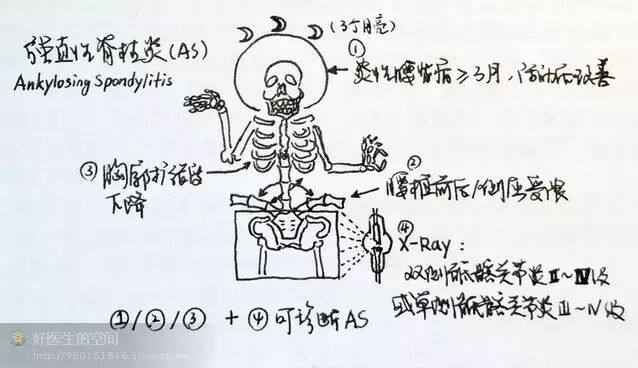 强直性脊柱炎(AS)
Ankylosing Spondylitis
(3个月亮)
① 炎性腰背痛≥3月,活动后改善
③ 胸廓扩缩度
下降
② 腰椎前后/侧屈受限
④ X-Ray:
双侧骶髂关节炎Ⅱ~Ⅳ级
或单侧骶髂关节炎Ⅲ~Ⅳ级
①/②/③ + ④可诊断AS
好医生的空间
http://980151516.qzone.qq.com